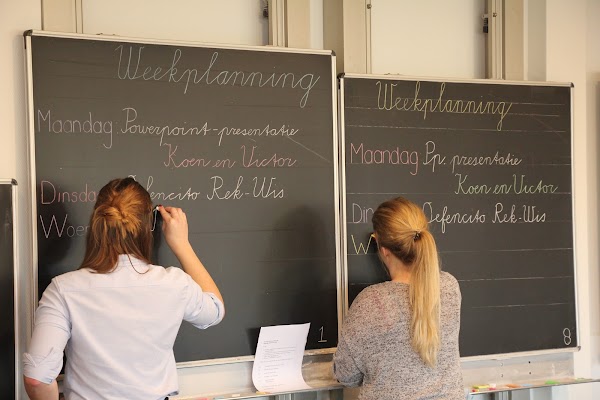 Weekplanning
Maandag Powerpoint-presentatie
Koen en Victor
Dinsda efencito Rek-Wis
Woe
1
Weekplanning
Maandag Pp. presentatie
Koen en Victor
Di efencito Rek-Wis
W
8